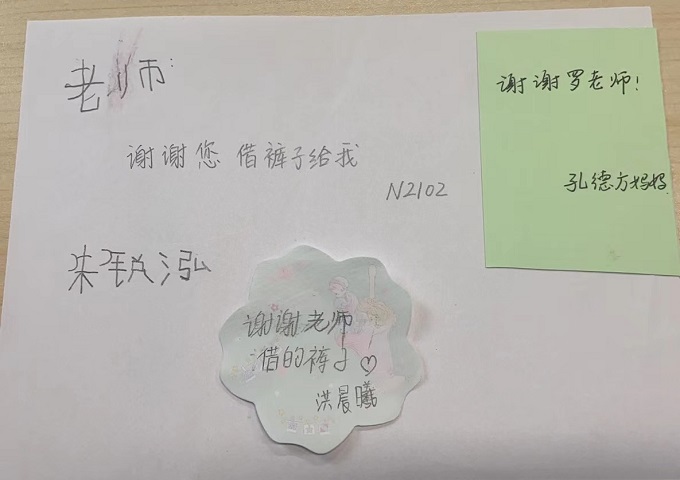 老师:
谢谢您 借裤子给我
N2102
朱毓泓
谢谢罗老师!
孔德方妈妈
谢谢老师
借的裤子♡
洪晨曦